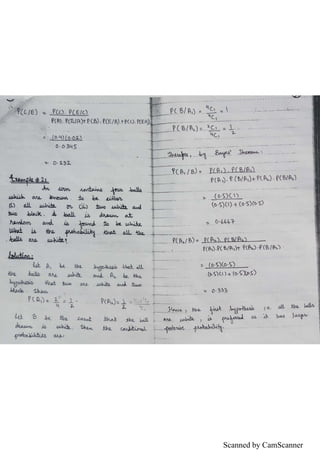 P(C/E) = P(C). P(E/C)
P(A). P(E/A) + P(B). P(E/B) + P(C). P(E/C)
= (0.4)(0.02)
0.0345
= 0.232
Example # 21
An urn contains four balls
which are known to be either
(i) all white or (ii) two white and
two black. A ball is drawn at
random and is found to be white
What is the probability that all the
balls are white?
Solution:
Let A₁ be the hypothesis that all
the balls are white and A₂ be the
hypothesis that two are white and two
black then
P(A₁) = 1/2 P(A₂) = 1/2
Let B be the event that the ball
drawn is white. Then the conditional
probabilities are:
P(B/A₁) = ⁴C₁ / ⁴C₁ = 1
P(B/A₂) = ²C₁ / ⁴C₁ = 1/2
Therefore, by Bayes' Theorem:
P(A₁/B) = P(A₁). P(B/A₁)
P(A₁). P(B/A₁) + P(A₂). P(B/A₂)
= (0.5)(1)
(0.5)(1) + (0.5)(0.5)
= 0.6667
P(A₂/B) = P(A₂). P(B/A₂)
P(A₁).P(B/A₁) + P(A₂).P(B/A₂)
= (0.5)(0.5)
(0.5)(1) + (0.5)(0.5)
= 0.333
Hence, the first hypothesis i.e all the balls
are white, is preferred as it has larger
posterior probability.
Scanned by CamScanner